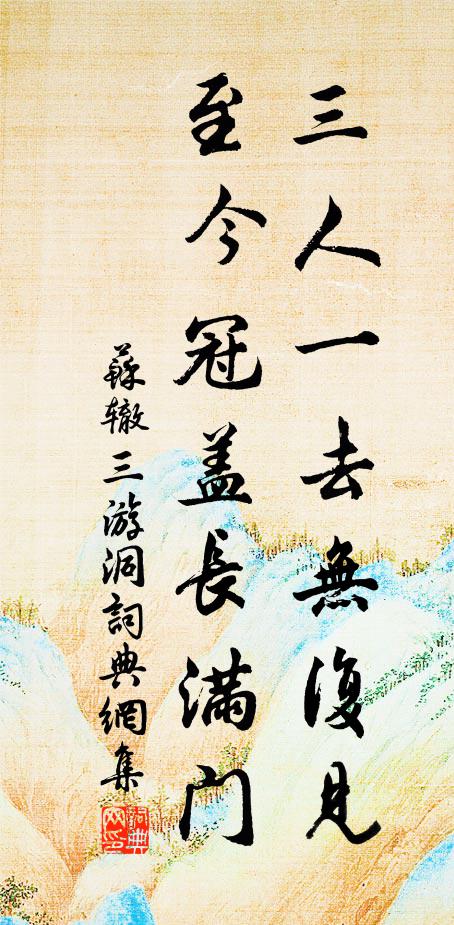 三人一去無復見
至今冠盖長满门
蘇辙三游洞詞典網集
詞典網印